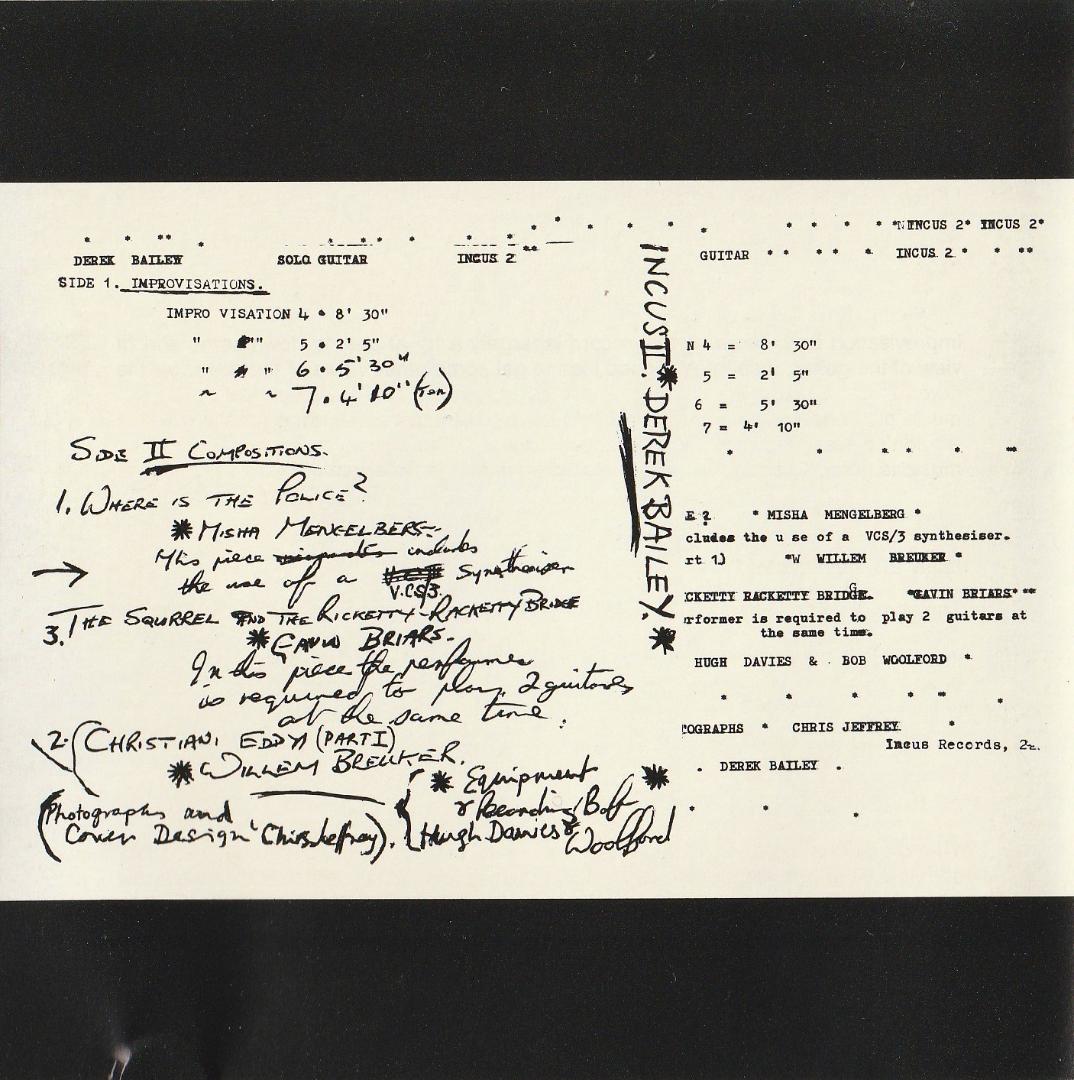 DEREK BAILEY SOLO GUITAR INCUS 2
SIDE 1. IMPROVISATIONS.
IMPRO VISATION 4 • 8' 30"
" " 5 • 2' 5"
" " 6 • 5' 30"
~ ~ 7 • 4' 10" (Ten)
SIDE II COMPOSITIONS.
1. WHERE IS THE POLICE?
* MISHA MENGELBERG.
This piece includes
the use of a V.C.S3. Synthesiser
3. THE SQUIRREL AND THE RICKETTY-RACKETTY BRIDGE
* GAVIN BRIARS.
In this piece the performer
is required to play 2 guitars
at the same time.
2. CHRISTIANI EDDY (PART I)
* WILLEM BREUKER.
(Photographs and
Cover Design Chris Jeffrey).
* Equipment *
& Recording Bob
Hugh Davies & Woolford
INCUS II. * DEREK BAILEY. *
INCUS 2* INCUS 2*
GUITAR * * * * * INCUS 2 * * **
N 4 = 8' 30"
5 = 2' 5"
6 = 5' 30"
7 = 4' 10"
E ? * MISHA MENGELBERG *
cludes the u se of a VCS/3 synthesiser.
rt 1) *W WILLEM BREUKER *
CKETTY RACKETTY BRIDGE. *GAVIN BRIARS* **
rformer is required to play 2 guitars at
the same time.
HUGH DAVIES & BOB WOOLFORD *
TOGRAPHS * CHRIS JEFFREY *
Incus Records, 2
. DEREK BAILEY .